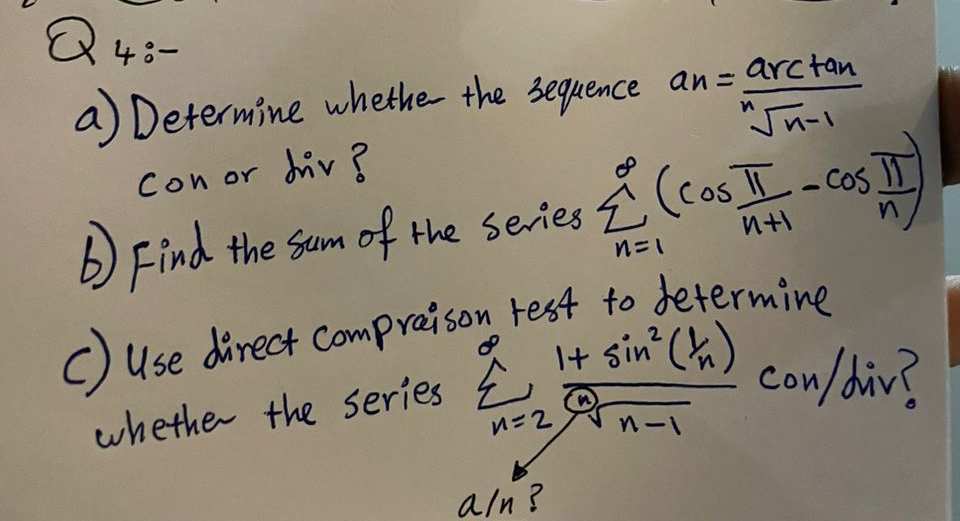 Q4:-
a) Determine whether the sequence an = arctan / ⁿ√n-1
con or div?
b) Find the sum of the series ∞ Σ n=1 (cos π/n+1 - cos π/n)
c) Use direct compraison test to determine
whether the series ∞ Σ n=2 1+ sin²(1/n) / ⓝ√n-1 con/div?
a/n?